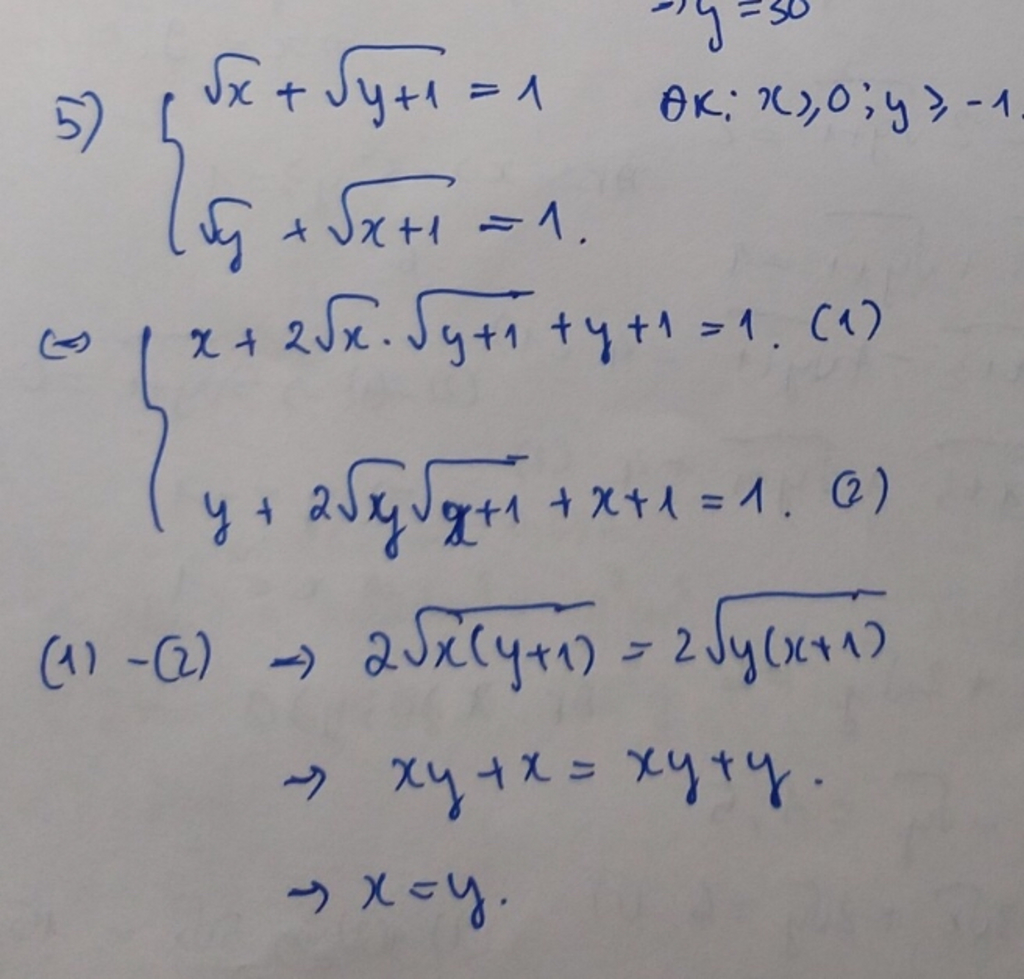 → y = 30
5) { √x + √(y+1) = 1 ĐK: x ≥ 0; y ≥ -1.
√y + √(x+1) = 1.
⇔ { x + 2√x . √(y+1) + y + 1 = 1. (1)
y + 2√y √(x+1) + x + 1 = 1. (2)
(1) - (2) → 2√(x(y+1)) = 2√(y(x+1))
→ xy + x = xy + y.
→ x = y.